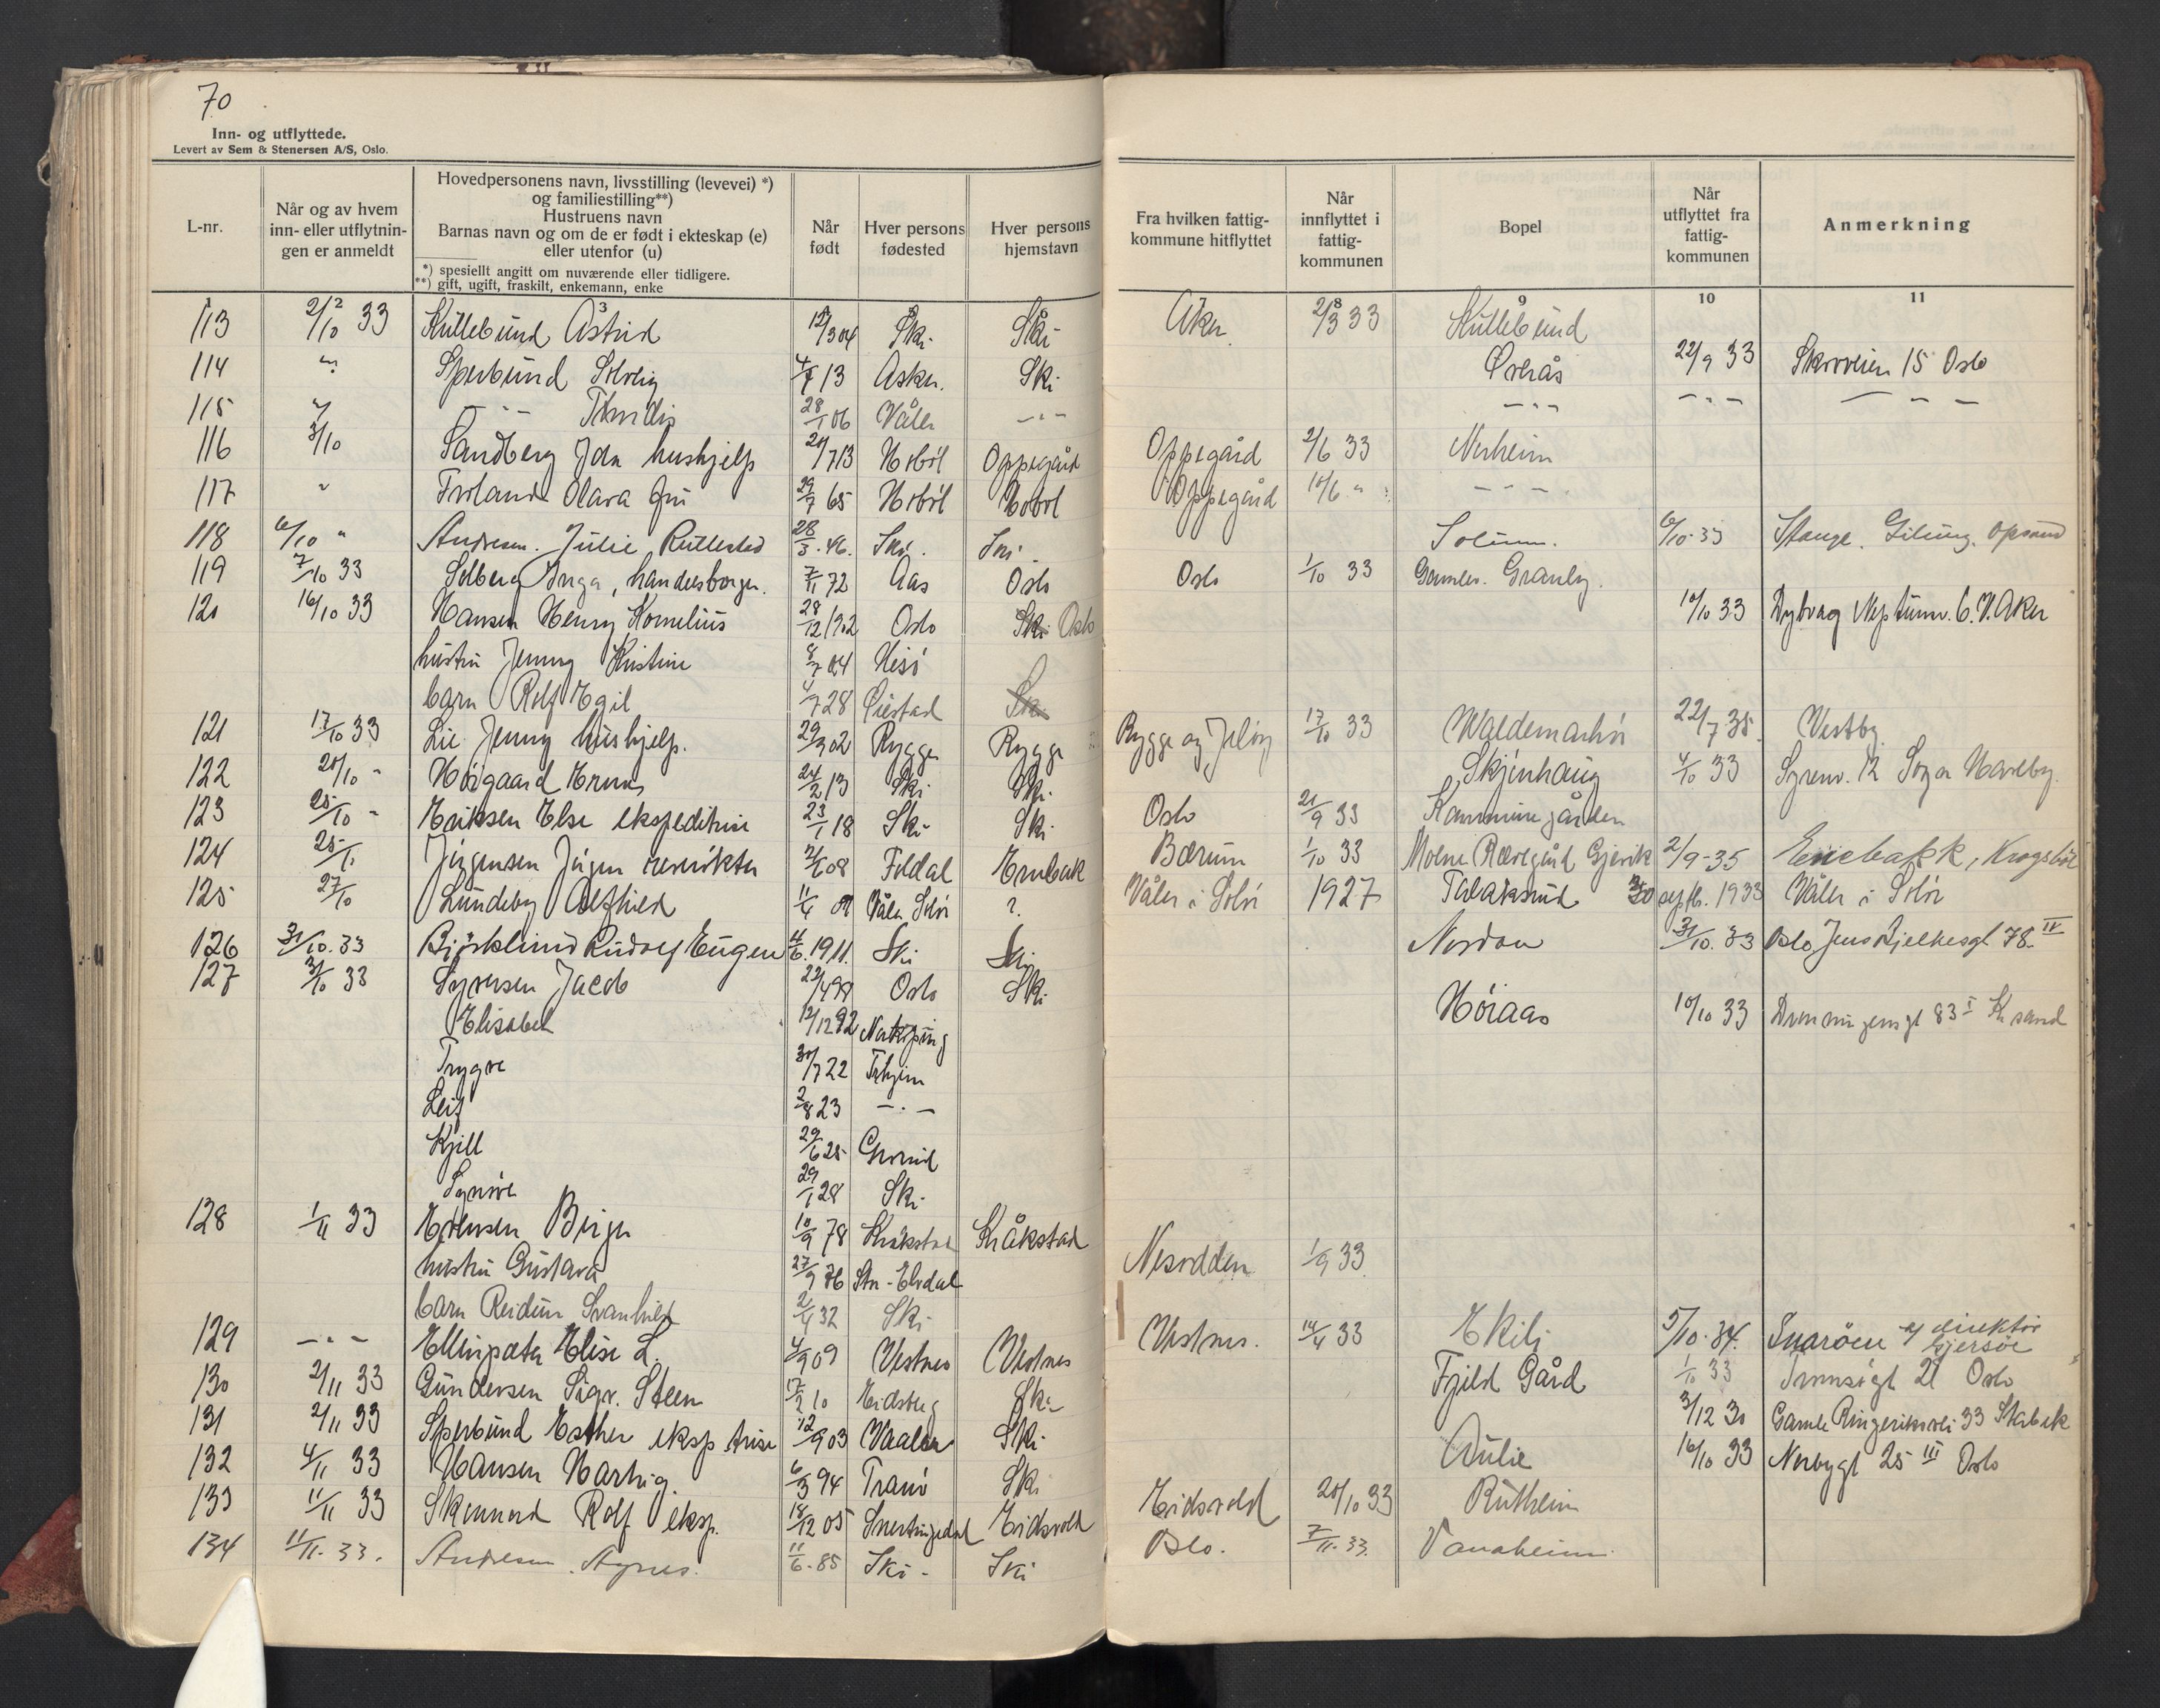 70
Inn- og utflyttede.
Levert av Sem & Stenersen A/S, Oslo.
L-nr.
Når og av hvem
inn- eller utflytnin-
gen er anmeldt
Hovedpersonens navn, livsstilling (levevei) *)
og familiestilling**)
Hustruens navn
Barnas navn og om de er født i ekteskap (e)
eller utenfor (u)
*) spesiellt angitt om nuværende eller tidligere.
**) gift, ugift, fraskilt, enkemann, enke
Når
født
Hver persons
fødested
Hver persons
hjemstavn
Fra hvilken fattig-
kommune hitflyttet
Når
innflyttet i
fattig-
kommunen
Bopel
Når
utflyttet fra
fattig-
kommunen
Anmerkning
2 3 8 9 10 11
113 2/10 33 Kullebund Astrid Ski Ski Aker 33 Kullebund
114 " Sperbund Solveig 13 Asker Ski 22/9 33 Skovveien 15 Oslo
115 " - " - Thordis 28/1 06 Våler - " - - " - - " - - - -
116 3/10 Sandberg Ida hushjelp 713 Hobøl Oppegård Oppegård 2/6 33 Nerheim
117 " Froland Olava fru 29/7 65 Hobøl Hobøl Oppegård 10/6 " - - -
118 6/10 " Andresen. Julie Rullestad 28/3. 46. Ski. Ski Solum. 6/10 33 Stange.
119 7/10 33 Solberg Inga, handelsborger. 7/11 72 Aas Oslo Oslo 1/10 33 Gamlev. Granly.
120 16/10 33 Hansen Henry Kornelius 28/12 1902 Oslo Ski Oslo 10/10 33 Dybvag Neptunv. 6. V. Aker
hustru Jenny Kristine 8/7 04 Hisø
barn Rolf Egil 4/7 28 Øiestad Ski
121 17/10 33 Lie Jenny hushjelp. 29/3 02 Rygge Rygge Rygge og Jeløy 17/10 33 Waldemarhøi 22/7 35 Vestby
122 20/10 " Høigaard Erna 24/2 13 Ski Ski Skjenhaug 4/10 33 Syrenv. 12
123 25/10 " Eriksen Else ekspeditrise 23/1 18 Ski Ski Oslo 21/9 33 Kommunegården
124 25/10 Jørgensen Jørgen 08 Enebak Bærum 1/10 33 Gjevik 2/9-35 Enebakk, Krogsbøl
125 27/10 Lundeby Alfhild 11/4 Våler Solør ? Våler i Solør 1927 Talaksrud 30 septb. 1933 Våler i Solør
126 31/10. 33 Bjørklund Rudolf Eugen 4/6. 1911. Ski Ski Nordon 31/10. 33 Oslo Jens Bjelkesgt 78. IV
127 31/10 33 Syversen Jacob Oslo Ski Høiaas 10/10 33 Dronningensgt 83 I Kr sand
Elisabet 12/12 92 Norkøping
Trygve 30/7 22 Trhjem
Leif 2/8 23 - " -
Kjell 29/6 25 Grorud
Synøve 29/1 28 Ski
128 1/11 33 Evensen Birger 10/9 78 Kråkstad Kråkstad Nesodden 1/9 33
hustru Gustava 27/9 76 Stor-Elvdal
barn Reidun Svanhild 2/4 32 Ski
129 - " - Ellingsæter Elise L. 4/9 09 Vestnes Vestnes Vestnes. 14/4 33 Ekeli 5/10. 34. Snarøen direktør
130 2/11 33 Gundersen Sigv. Steen 17/2 10 Eidsberg Ski Fjeld Gård 1/10 33 Tromsøgt 21 Oslo
131 2/11 33 Sperbund Esther eksp. trise 12/9 03 Vaaler Ski 3/12 30 Gamle Ringeriksvei 33 Stabek
132 4/11 33 Hansen Hartvig 6/3 94 Tranø Ski Aulie 16/10 33 Norbygt 25 III Oslo
133 11/11 33 Skinnerud Rolf eksp. 18/12 05 Snertingedal Eidsvold Eidsvold 20/10 33 Rutheim
134 11/11. 33. Andresen. Agnes. 11/6. 85 Ski - Ski Oslo. 7/11. 33. Vanaheim